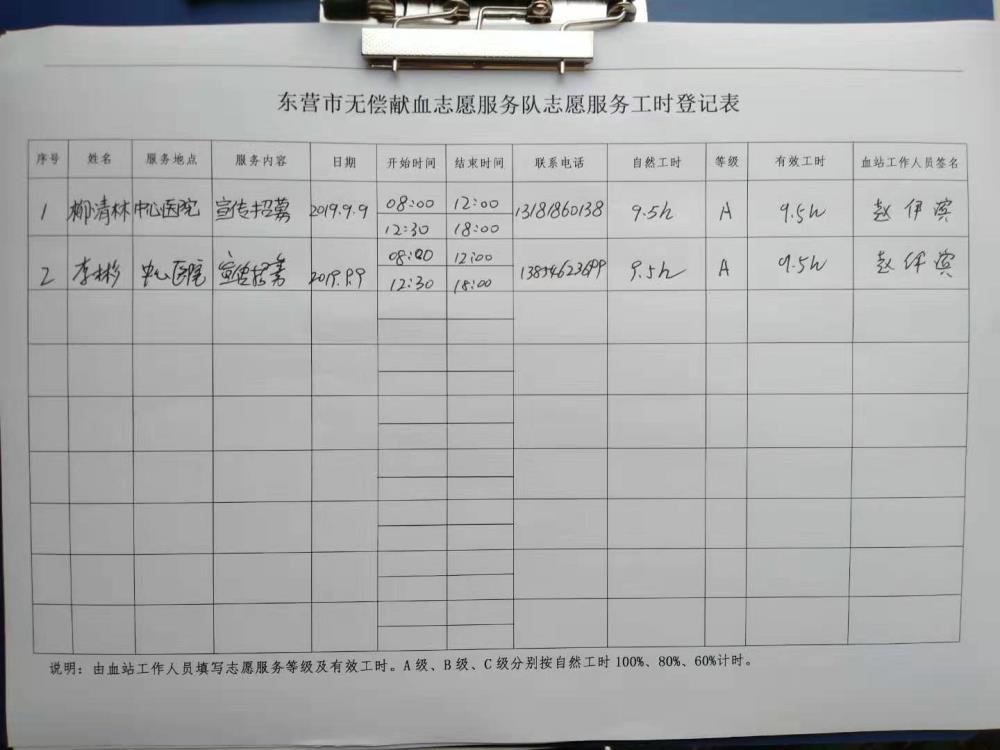 东营市无偿献血志愿服务队志愿服务工时登记表
序号 姓名 服务地点 服务内容 日期 开始时间 结束时间 联系电话 自然工时 等级 有效工时 血站工作人员签名
1 柳清林 中心医院 宣传招募 2019.9.9 08:00 12:00 13181860138 9.5h A 9.5h 赵伊滨
12:30 18:00
2 李彬 中心医院 宣传招募 2019.9.9 08:00 12:00 9.5h A 9.5h 赵伊滨
12:30 18:00
说明：由血站工作人员填写志愿服务等级及有效工时。A级、B级、C级分别按自然工时100%、80%、60%计时。